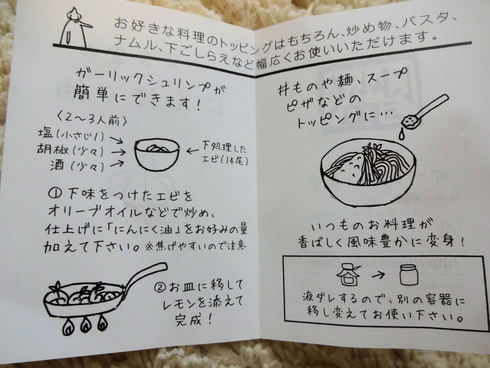 お好きな料理のトッピングはもちろん、炒め物、パスタ、
ナムル、下ごしらえなど幅広くお使いいただけます。
ガーリックシュリンプが
簡単にできます!
〈2〜3人前〉
塩(小さじ1)
胡椒(少々)
酒(少々)
下処理した
エビ(14尾)
①下味をつけたエビを
オリーブオイルなどで炒め、
仕上げに「にんにく油」をお好みの量
加えて下さい。※焦げやすいので注意
②お皿に移して
レモンを添えて
完成!
丼ものや麺、スープ
ピザなどの
トッピングに…
いつものお料理が
香ばしく風味豊かに変身!
液ダレするので、別の容器に
移し変えてお使い下さい。